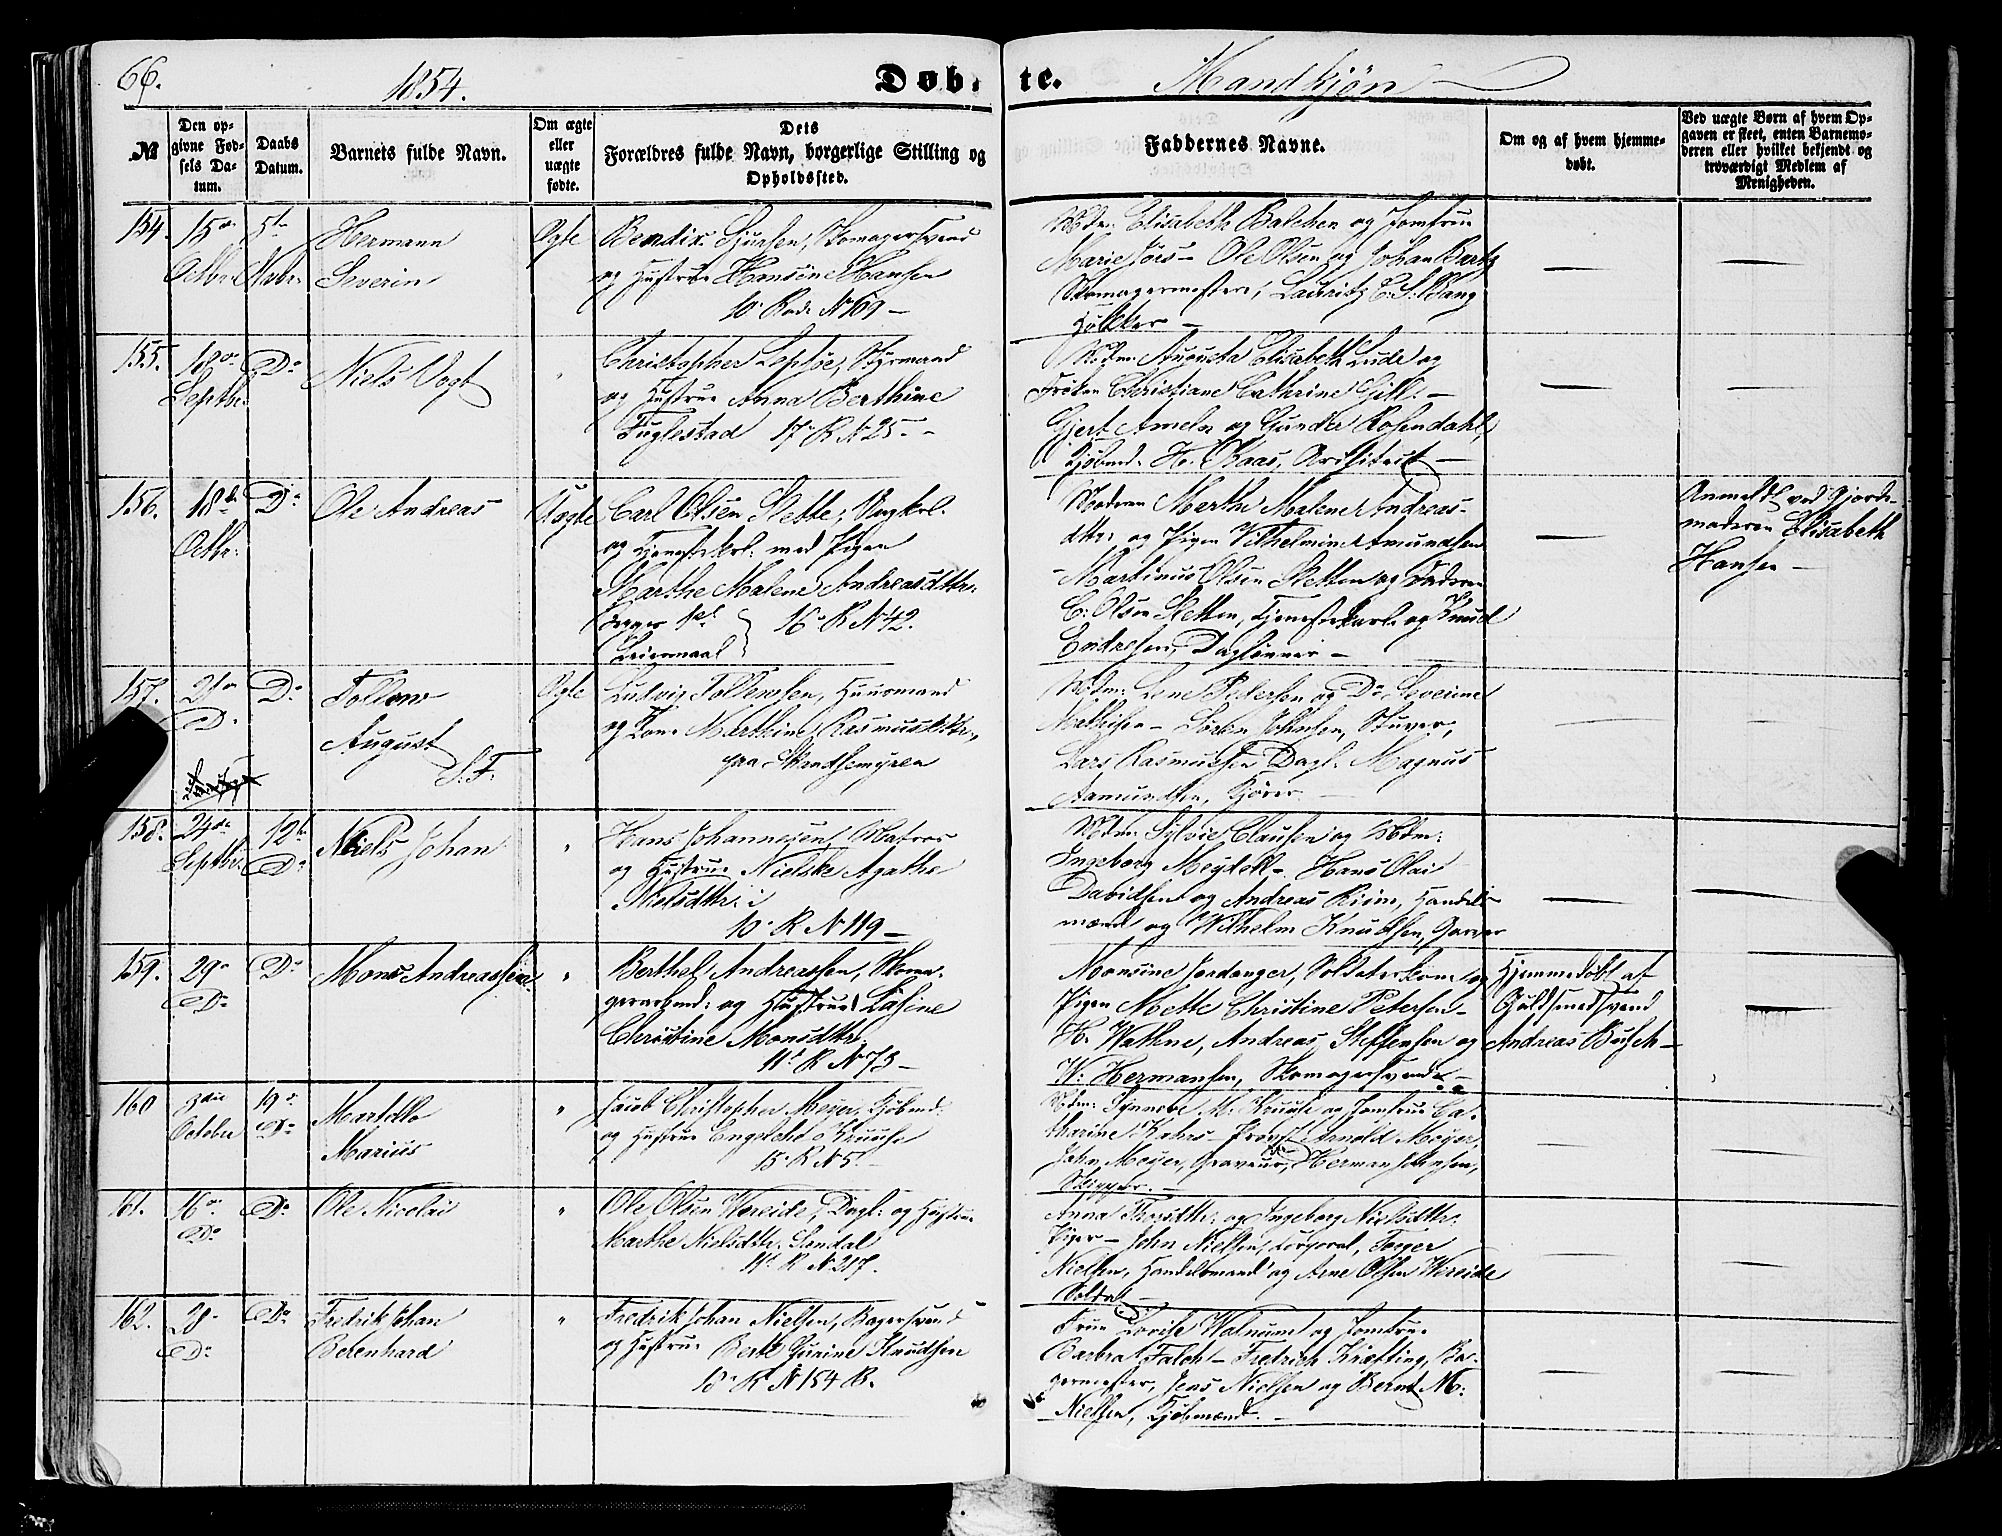 66.
1854.
Døbte.
Mandkjøn
№
Den op-
givne Fød-
sels Da-
tum.
Daabs
Datum.
Barnets fulde Navn.
Om ægte
eller
uægte
fødte.
Dets
Forældres fulde Navn, borgerlige Stilling og
Opholdssted.
Faddernes Navne.
Om og af hvem hjemme-
døbt.
Ved uægte Børn af hvem Op-
gaven er skeet, enten Barnemo-
deren eller hvilket bekjendt og
troværdigt Medlem af
Menigheden.
154.
15de
Octbr
5te
Novbr.
Hermann
Severin
Ægte
Bendix Sjursen, Skomagersvend
og Hustrue Hansine Hansen
10. Rode № 69 —
Mdm: Elisabeth Balchen og Jomfrue
Marie Jørs — Ole Olsen og Johan Bartz
Skomagermestere, Lauritz C. S. Bang
Høkker —
155.
18de
Septbr.
Do
Niels Vogt
"
Christopher Lepsøe, Styrmand
og Hustrue Anna Berthine
Fuglestad 17. R № 25. —
Mdm: Augusta Elisabeth Lude og
Frøken Christiane Cathrine Gill. —
Gjert Ameln og Gunder Rosendahl,
Kjøbmd. H. Kaas, Architect —
156.
18de
Octbr.
Do
Ole Andreas
Uægte
Carl Olsen Slette, Ungkrl.
og Tjenestekrl. med Pigen
Marthe Malene Andreasdttr.
Begges 1ste
Leiermaal
16. R № 42.
Moderen Marthe Malene Andreas-
dttr. og Pigen Vilhelmine Amundsen
— Martinus Olsen Sletten og Faderen
C. Olsen Sletten, Tjenestekarl og Knud
Endresen, Dagløнner —
Anmeldt ved Gjorde-
moderen Elisabeth
Hansen —
157.
21de
D.
Do
Tollew
August
S. F.
Ægte
Ludvig Tollewsen, Huusmand
og Kone Marthine Rasmusdttr.,
paa Skandsemyren
Mdm: Lene Pedersen og Do Severine
Mathisen — Søren Johnsen, Stuver,
Lars Rasmussen Dagl. Magnus
Aamundsen, Kjører. —
158.
24de
Septbr.
12te
Do
Niels Johan
"
Hans Johannesen, Matros
og Hustrue Nielske Agathe
Nielsdttr. i
10. R № 119 —
Mdm: Sylvie Clausen og Mdm:
Ingeborg Meydell — Hans Olai
Davidsen og Andreas Riim, Handels-
mænd og Wilhelm Knudsen, Garver
159.
29de
Do
Do
Mons Andreas
"
Berthel Andreassen, Skoma-
gerarbmd. og Hustrue Lasine
Christine Monsdttr.
11t R № 73 —
Monsine Jordanger, Soldaterkone og
Pigen Mette Christine Petersen —
H. Wathne, Andreas Steffensen og
W. Hermansen, Skomagersvende —
Hjemmedøbt af
Guldsmedsvend
Andreas Busch —
160
3die
October
19de
Do
Martello
Marius
"
Jacob Christopher Meyer, Kjøbmd.
og Hustrue Engelche Kruuse
15. R № 5. —
Mdm: Synneve M. Kruuse og Jomfrue Ca-
tharine Kahrs — Provst Arnold Meyer,
John Meyer, Graveur, Herman Jensen,
Skipper. —
161.
16de
Do
Do
Ole Nicolai
"
Ole Olsen Wereide, Dagl. og Hustrue
Marthe Nielsdttr. Sandal
11t R № 217.
Anna Thosdttr. og Ingeborg Nielsdttr.
Piger — John Nielsen, Corporal, Torger
Nielsen, Handelsmand og Arne Olsen Wereide
Soldat —
162.
28de
Do
Do
Fredrik Johan
Berenhard
"
Fredrik Johan Nielsen, Bagersvend
og Hustrue Berte Gurine Knudsen
18. R № 154 B.
Frue Lovise Walnum og Jomfrue
Barbra Falch — Fredrich Kræfting, Ba-
germester, Jens Nielsen og Bernt M.
Nielsen, Kjøbmænd. —